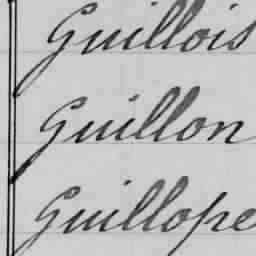 Guillois
Guillon
Guillope